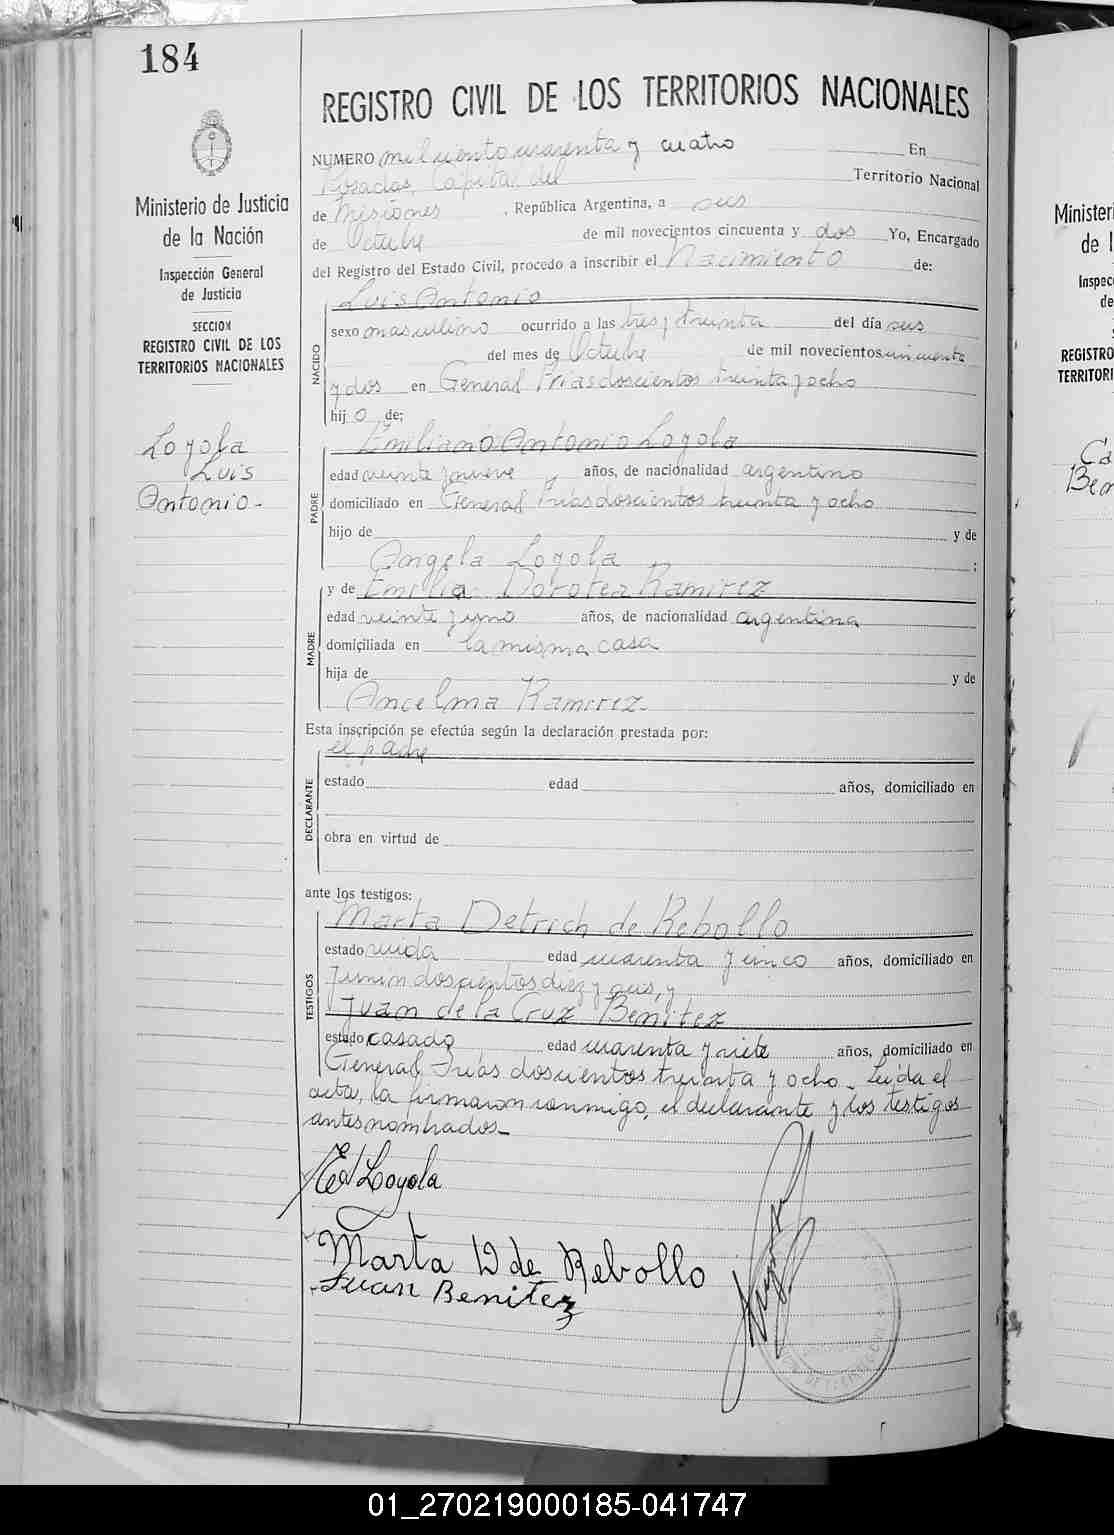 184
Ministerio de Justicia
de la Nación
Inspección General
de Justicia
SECCION
REGISTRO CIVIL DE LOS
TERRITORIOS NACIONALES
Loyola
Luis
Antonio.-
REGISTRO CIVIL DE LOS TERRITORIOS NACIONALES
NUMERO mil ciento cuarenta y cuatro En
Posadas, Capital del Territorio Nacional
de Misiones, República Argentina, a seis
de Octubre de mil novecientos cincuenta y dos Yo, Encargado
del Registro del Estado Civil, procedo a inscribir el Nacimiento de:
NACIDO
Luis Antonio
sexo masculino ocurrido a las tres y treinta del día seis
del mes de Octubre de mil novecientos cincuenta
y dos en General Frias doscientos treinta y ocho
hijo de;
PADRE
Emiliano Antonio Loyola
edad veinte y nueve años, de nacionalidad argentino
domiciliado en General Frias doscientos treinta y ocho
hijo de y de
Angela Loyola ;
MADRE
y de Emilia Dorotea Ramirez
edad veinte y uno años, de nacionalidad argentina
domiciliada en la misma casa
hija de y de
Ancelma Ramirez.
Esta inscripción se efectúa según la declaración prestada por:
DECLARANTE
el padre
estado edad años, domiciliado en
obra en virtud de
ante los testigos:
TESTIGOS
Marta Detrich de Rebollo
estado viuda edad cuarenta y cinco años, domiciliado en
Junin doscientos diez y seis, y
Juan de la Cruz Benitez
estado casado edad cuarenta y siete años, domiciliado en
General Frias doscientos treinta y ocho. Leida el
acta, la firmaron conmigo, el declarante y los testigos
antes nombrados.-
Loyola
Marta D de Rebollo
Juan Benitez
Minister
de l
Inspec
de
REGISTRO
TERRITORI
Ca
Ben
01_270219000185-041747